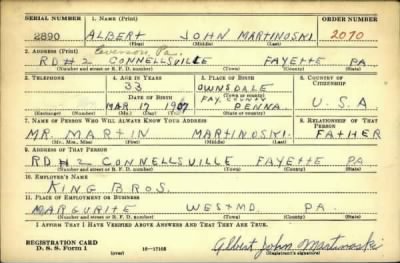 SERIAL NUMBER 1. NAME (Print) ORDER NUMBER
2890 ALBERT JOHN MARTINOSKI 2070
(First) (Middle) (Last)
2. ADDRESS (Print) Everson, Pa.
RD #2 CONNELLSVILLE FAYETTE PA
(Number and street or R. F. D. number) (Town) (County) (State)
3. TELEPHONE 4. AGE IN YEARS 5. PLACE OF BIRTH 6. COUNTRY OF CITIZENSHIP
33 OWNSDALE
DATE OF BIRTH (Town or county)
MAR 17 1907 FAY. COUNTY PENNA. U. S. A
(Exchange) (Number) (Mo.) (Day) (Yr.) (State or country)
7. NAME OF PERSON WHO WILL ALWAYS KNOW YOUR ADDRESS 8. RELATIONSHIP OF THAT PERSON
MR. MARTIN MARTINOSKI FATHER
(Mr., Mrs., Miss) (First) (Middle) (Last)
9. ADDRESS OF THAT PERSON
RD #2 CONNELLSVILLE FAYETTE PA
(Number and street or R. F. D. number) (Town) (County) (State)
10. EMPLOYER'S NAME
KING BROS.
11. PLACE OF EMPLOYMENT OR BUSINESS
MARGURITE WESTMD. PA.
(Number and street or R. F. D. number) (Town) (County) (State)
I AFFIRM THAT I HAVE VERIFIED ABOVE ANSWERS AND THAT THEY ARE TRUE.
REGISTRATION CARD
D. S. S. Form 1 (over) 16—17105 Albert John Martinoski
(Registrant's signature)